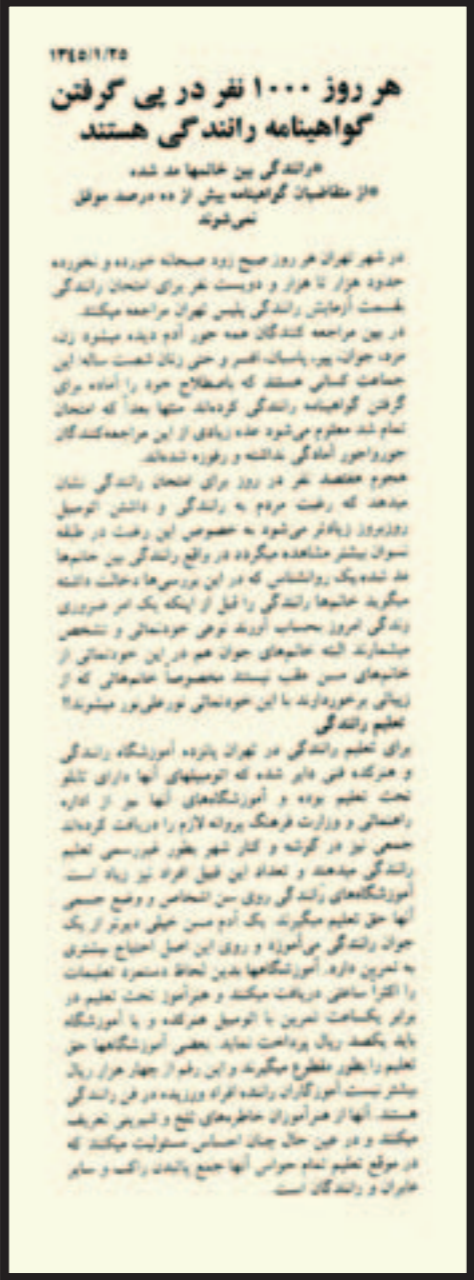 ۱۳۴۵/۱/۲۵
هر روز ۱۰۰۰ نفر در پی گرفتن
گواهینامه رانندگی هستند
*رانندگی بین خانمها مد شده
*از متقاضیان گواهینامه بیش از ده درصد موفق
نمی‌شوند
در شهر تهران هر روز صبح زود صبحانه خورده و نخورده
حدود هزار تا هزار و دویست نفر برای امتحان رانندگی
بقسمت آزمایش رانندگی پلیس تهران مراجعه میکنند.
در بین مراجعه کنندگان همه جور آدم دیده میشود زن،
مرد، جوان، پیر، پاسبان، افسر و حتی زنان شصت ساله این
جماعت کسانی هستند که باصطلاح خود را آماده برای
گرفتن گواهینامه رانندگی کرده‌اند منتها بعداً که امتحان
تمام شد معلوم می‌شود عده زیادی از این مراجعه‌کنندگان
جورواجور آمادگی نداشته و رفوزه شده‌اند.
هجوم هفتصد نفر در روز برای امتحان رانندگی نشان
میدهد که رغبت مردم به رانندگی و داشتن اتومبیل
روزبروز زیادتر می‌شود به خصوص این رغبت در طبقه
نسوان بیشتر مشاهده میگردد در واقع رانندگی بین خانم‌ها
مد شده یک روانشناس که در این بررسی‌ها دخالت داشته
میگوید خانم‌ها رانندگی را قبل از اینکه یک امر ضروری
زندگی امروز بحساب آورند نوعی خودنمائی و تشخص
میشمارند البته خانم‌های جوان هم در این خودنمائی از
خانم‌های مسن عقب نیستند مخصوصاً خانم‌هائی که از
زیبائی برخوردارند با این خودنمائی نورعلی‌نور میشوند!؟
تعلیم رانندگی
برای تعلیم رانندگی در تهران پانزده آموزشگاه رانندگی
و هنرکده فنی دایر شده که اتومبیلهای آنها دارای تابلو
تحت تعلیم بوده و آموزشگاه‌های آنها نیز از اداره
راهنمائی و وزارت فرهنگ پروانه لازم را دریافت کرده‌اند
جمعی نیز در گوشه و کنار شهر بطور غیررسمی تعلیم
رانندگی میدهند و تعداد این قبیل افراد نیز زیاد است
آموزشگاه‌های رانندگی روی سن اشخاص و وضع جسمی
آنها حق تعلیم میگیرند. یک آدم مسن خیلی دیرتر از یک
جوان رانندگی می‌آموزد و روی این اصل احتیاج بیشتری
به تمرین دارد. آموزشگاهها بدین لحاظ دستمزد تعلیمات
را اکثراً ساعتی دریافت میکنند و هنرآموز تحت تعلیم در
برابر یکساعت تمرین با اتومبیل هنرکده و یا آموزشگاه
باید یکصد ریال پرداخت نماید. بعضی آموزشگاهها حق
تعلیم را بطور مقطوع میگیرند و این رقم از چهار هزار ریال
بیشتر نیست آموزگاران راننده افراد ورزیده در فن رانندگی
هستند. آنها از هنرآموزان خاطره‌های تلخ و شیرینی تعریف
میکنند و در عین حال چنان احساس مسئولیت میکنند که
در موقع تعلیم تمام حواس آنها جمع پائیدن راکب و سایر
عابران و رانندگان است.